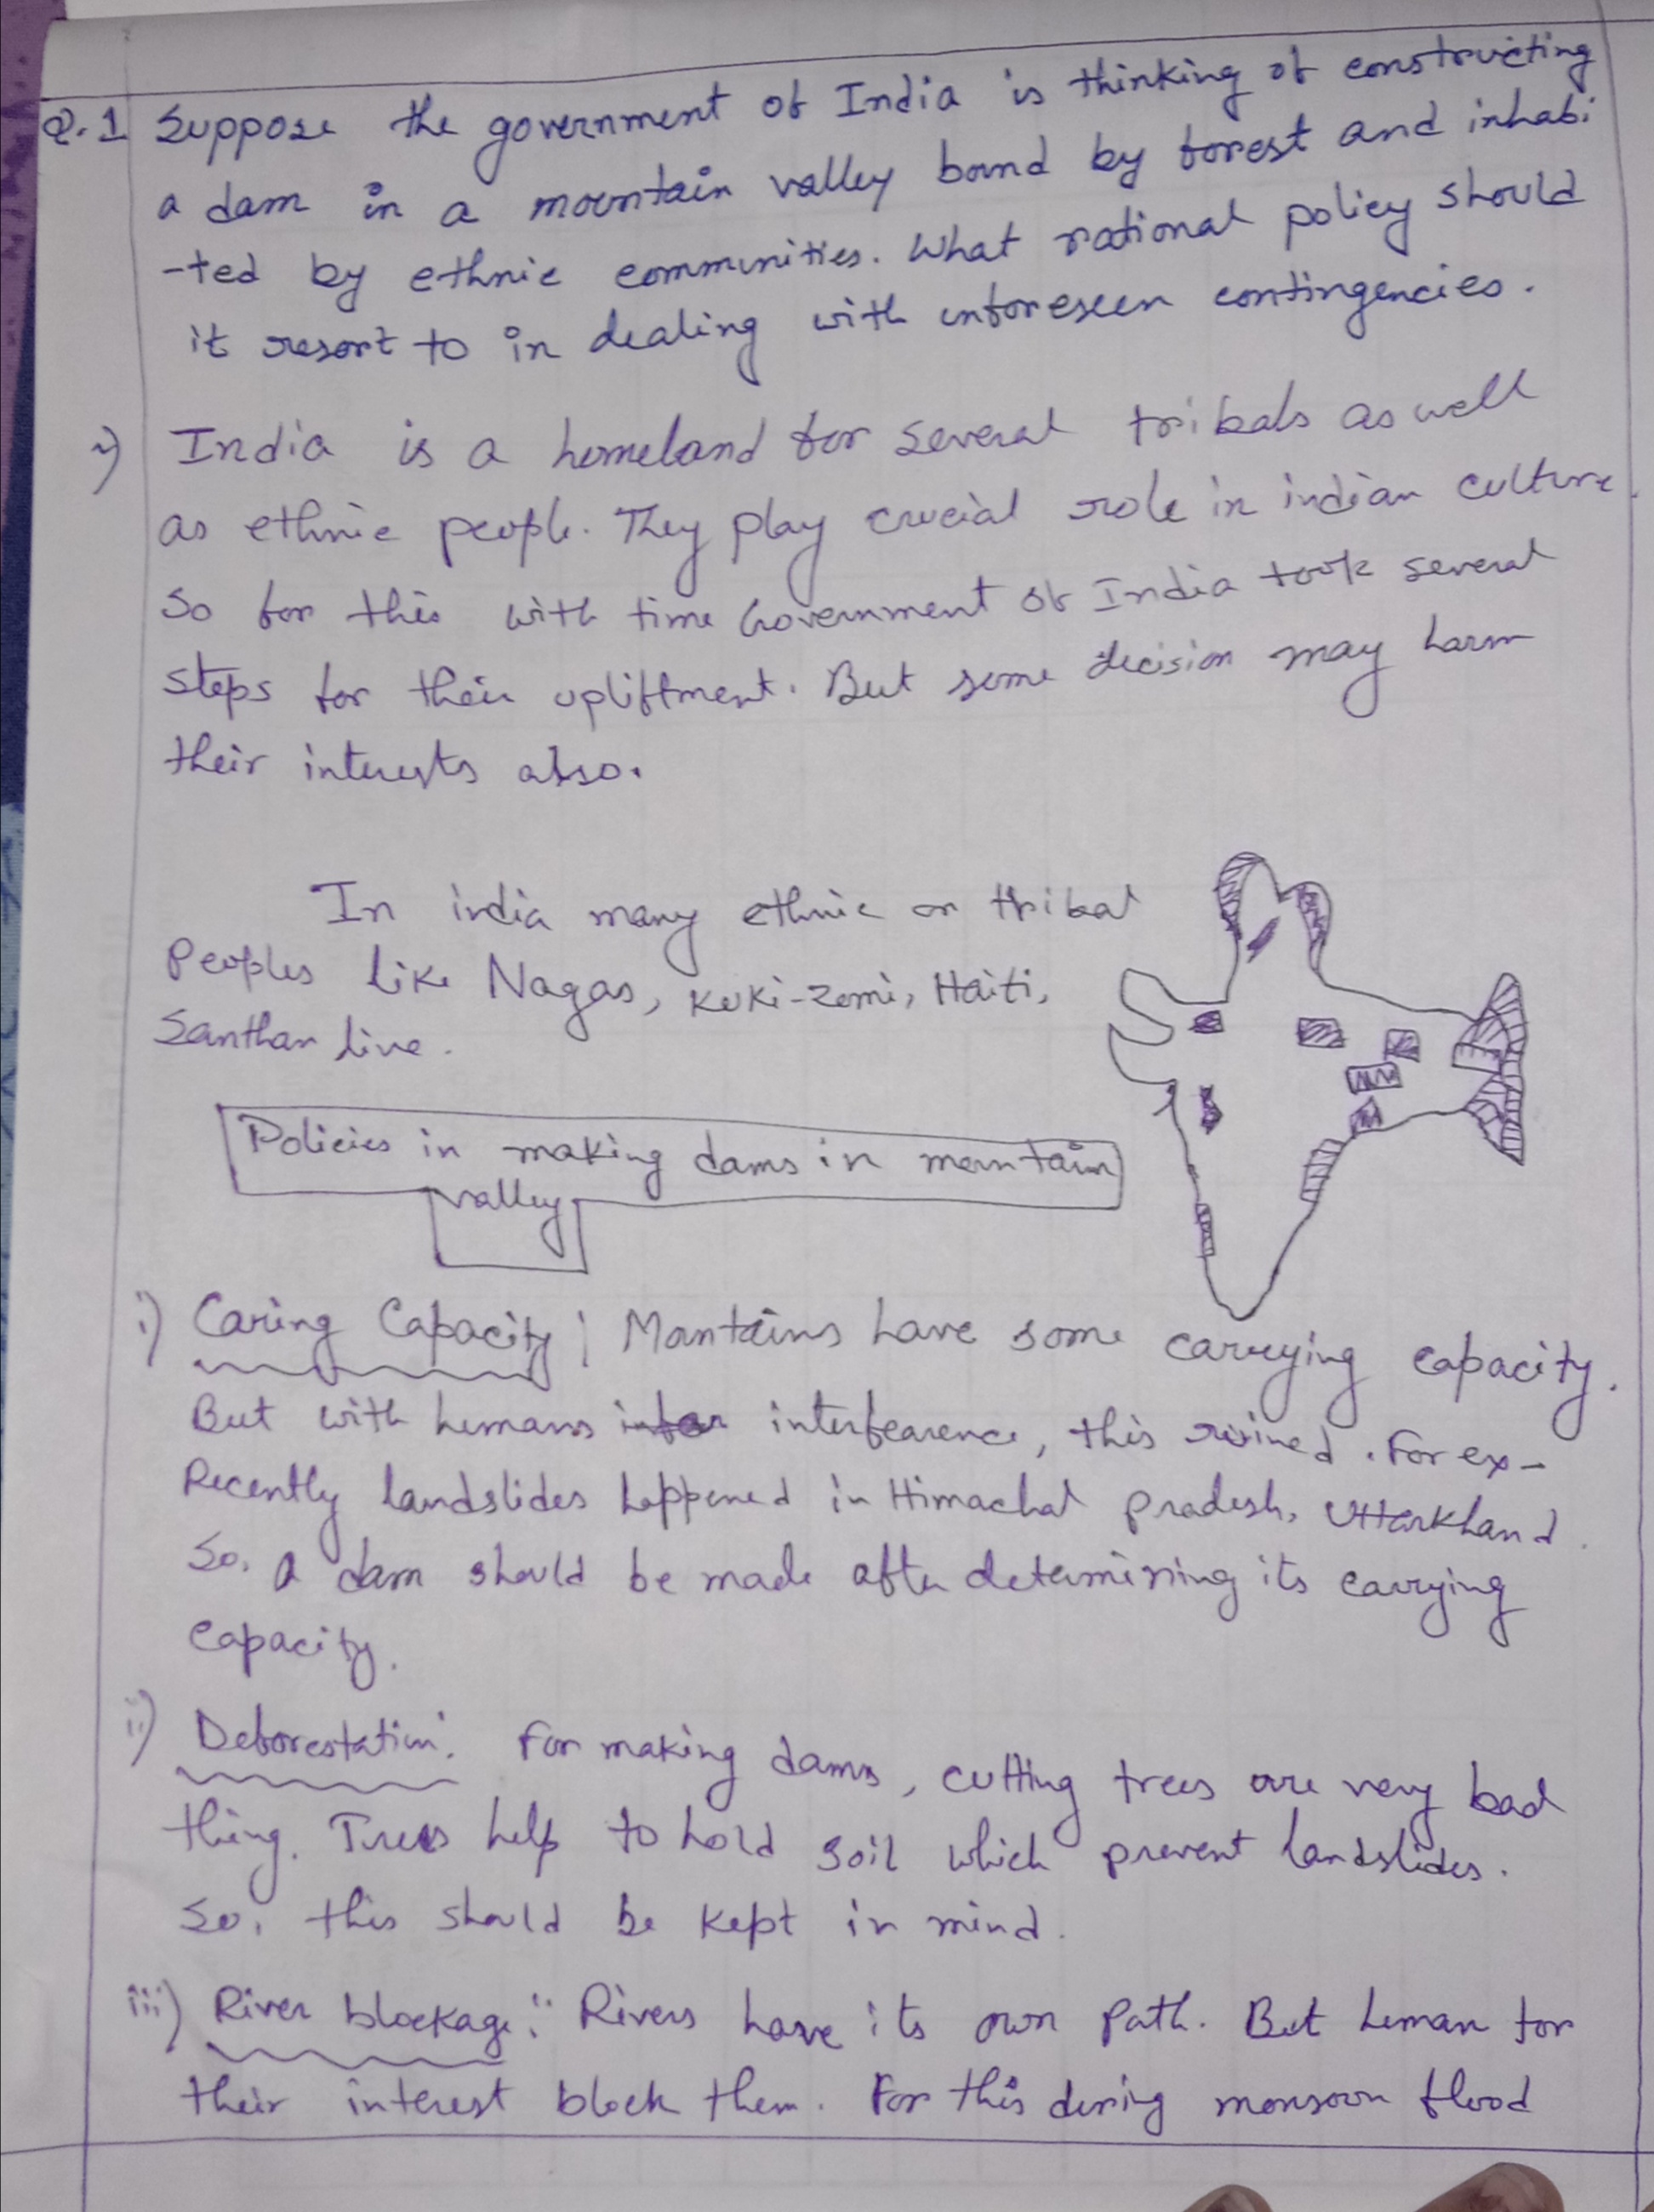 Q.1 Suppose the government of India is thinking of constructing
a dam in a mountain valley bound by forest and inhabi
-ted by ethnic communities. What rational policy should
it resort to in dealing with unforeseen contingencies.
India is a homeland for several tribals as well
as ethnic people. They play crucial role in indian culture.
So for this with time Government of India took several
steps for their upliftment. But some decision may harm
their interests also.
In india many ethnic or tribal
Peoples like Nagas, Kuki-Zomi, Haiti,
Santhan live.
Policies in making dams in mountain
valley
i) Caring Capacity: Mountains have some carrying capacity.
But with humans interfearence, this ruined. For ex-
Recently landslides happened in Himachal pradesh, Uttarkhand.
So, a dam should be made after determining its carrying
capacity.
ii) Deforestation: For making dams, cutting trees are very bad
thing. Trees help to hold soil which prevent landslides.
So, this should be kept in mind.
iii) River blockage: Rivers have its own path. But human for
their interest block them. For this during monsoon flood